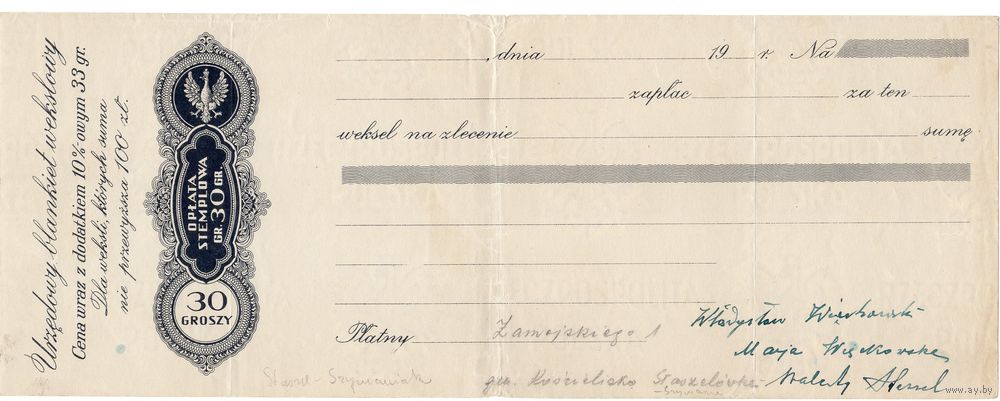 Urzędowy blankiet wekslowy
Cena wraz z dodatkiem 10% owym 33 gr.
Dla weksli, których suma
nie przewyższa 100 zł.
OPŁATA
STEMPLOWA
GR. 30 GR.
30
GROSZY
, dnia 19 r. Na
zapłac za ten
weksel na zlecenie sumę
Płatny Zamojskiego 1
Władysław Więckowski
Marja Więckowska
gm. Kościelisko Staszelówka
Stassel-Szymaniak
www.ay.by